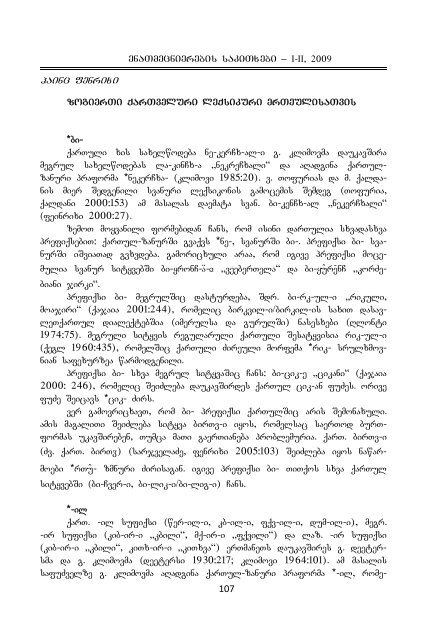 ენათმეცნიერების საკითხები – I-II, 2009
ჰაინც ფენრიხი
ზოგიერთი ქართველური ლექსიკური ერთეულისათვის
*ბი-
ქართული ხის სახელწოდება ნე-კერჩხ-ალ-ი გ. კლიმოვმა დაუკავშირა
მეგრულ სახელწოდებას ლა-კინჩხ-ა „ნეკრეჩხალი“ და აღადგინა ქართულ-
ზანური პრაფორმა *ნეკერჩხა- (კლიმოვი 1985:20). ვ. თოფურიას და მ. ქალდა-
ნის მიერ შედგენილი სვანური ლექსიკონის გამოცემის შემდეგ (თოფურია,
ქალდანი 2000:153) ამ მასალას დაემატა სვან. ბი-კენჩხ-ალ „ნეკერჩხალი“
(ფეინრიხი 2000:27).
ზემოთ მოყვანილი ფორმებიდან ჩანს, რომ ისინი დართულია სხვადასხვა
პრეფიქსებით: ქართულ-ზანურში გვაქვს *ნე-, სვანურში ბი-. პრეფიქსი ბი- სვა-
ნურში იშვიათად გვხვდება. გამორიცხული არაა, რომ იგივე პრეფიქსი მოცე-
მულია სვანურ სიტყვებში ბი-ყრონჩ-ა-ი „ვეებერთელა“ და „კორძე-
ბიანი ჯირკი“.
პრეფიქსი ბი- მეგრულშიც დასტურდება, შდრ. ბი-რკ-ულ-ი „რიკული,
მოაჯირი“ (ქაჯაია 2001:244), რომელიც ბირკვილ-ი/ბირკილ-ის სახით დასავ-
ლეთქართულ დიალექტებშია (იმერულსა და გურულში) ნასესხები (ღლონტი
1974:75). მეგრული სიტყვის რეგულარული ქართული შესატყვისია რიკ-ულ-ი
(ქეგლ 1960:435), რომელშიც ქართული ძირეული მორფემა *რიკ- სრულხმოვ-
ნიან საფეხურზეა წარმოდგენილი.
პრეფიქსი ბი- სხვა მეგრულ სიტყვაშიც ჩანს: ბი-ციკ-ე „ციკანი“ (ქაჯაია
2000: 246), რომელიც შეიძლება დაუკავშირდეს ქართულ ციკ-ან ფუძეს. ორივე
ფუძე შეიცავს *ციკ- ძირს.
ვერ გამოვრიცხავთ, რომ ბი- პრეფიქსი ქართულშიც არის შემონახული.
ამის მაგალითი შეიძლება სიტყვა ბირთვ-ი იყოს, რომელსაც საერთოდ ბურთ-
ფორმას უკავშირებენ, თუმცა მათი გაერთიანება პრობლემურია. ქართ. ბირთვ-ი
(ძვ. ქართ. ბირთჳ) (სარჯველაძე, ფენრიხი 2005:103) შეიძლება იყოს ნაწარ-
მოები *რთუ̂- ზმნური ძირისაგან. იგივე პრეფიქსი ბი- თითქოს სხვა ქართულ
სიტყვებში (ბი-ჩვერ-ი, ბი-ლიკ-ი/ბი-ლიგ-ი) ჩანს.
*-ილ
ქართ. -ილ სუფიქსი (წერ-ილ-ი, კბ-ილ-ი, ფქვ-ილ-ი, დუმ-ილ-ი), მეგრ.
-ირ სუფიქსი (კიბ-ირ-ი „კბილი“, მქ-ირ-ი „ფქვილი“) და ლაზ. -ირ სუფიქსი
(კიბ-ირ-ი „კბილი“, კითხ-ირ-ი „კითხვა“) ერთმანეთს დაუკავშირეს გ. დეეტერ-
სმა და გ. კლიმოვმა (დეეტერსი 1930:217; კლიმოვი 1964:101). ამ მასალის
საფუძველზე გ. კლიმოვმა აღადგინა ქართულ-ზანური პრაფორმა *-ილ, რომე-
107